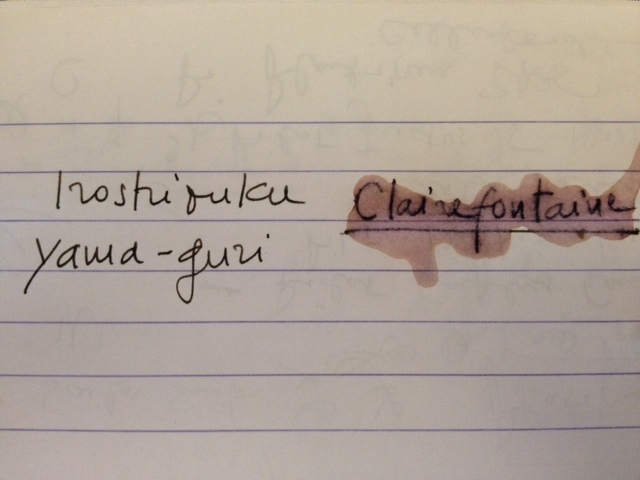 Iroshizuku Clairefontaine
yama-guri